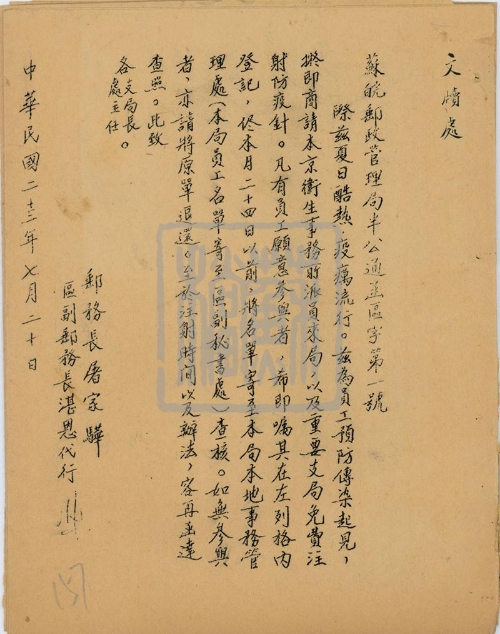 文牘處
蘇皖郵政管理局半公通函區字第一號
際茲夏日酷熱疫癘流行。茲為員工預防傳染起見，
擬即商請本京衛生事務所派員來局，以及重要支局免費注
射防疫針。凡有員工願意參與者，希即囑其在左列格內
登記，佟本月二十四日以前，將名單寄至本局本地事務管
理處（本局員工名單寄至區副秘書處）查核。如無參與
者，亦請將原單退還。至於注射時間以及辦法，容再函達
查照。此致
各支局長。
處主任
郵務長屠家驊
區副郵務長湛恩代行
中華民國二十三年七月二十日